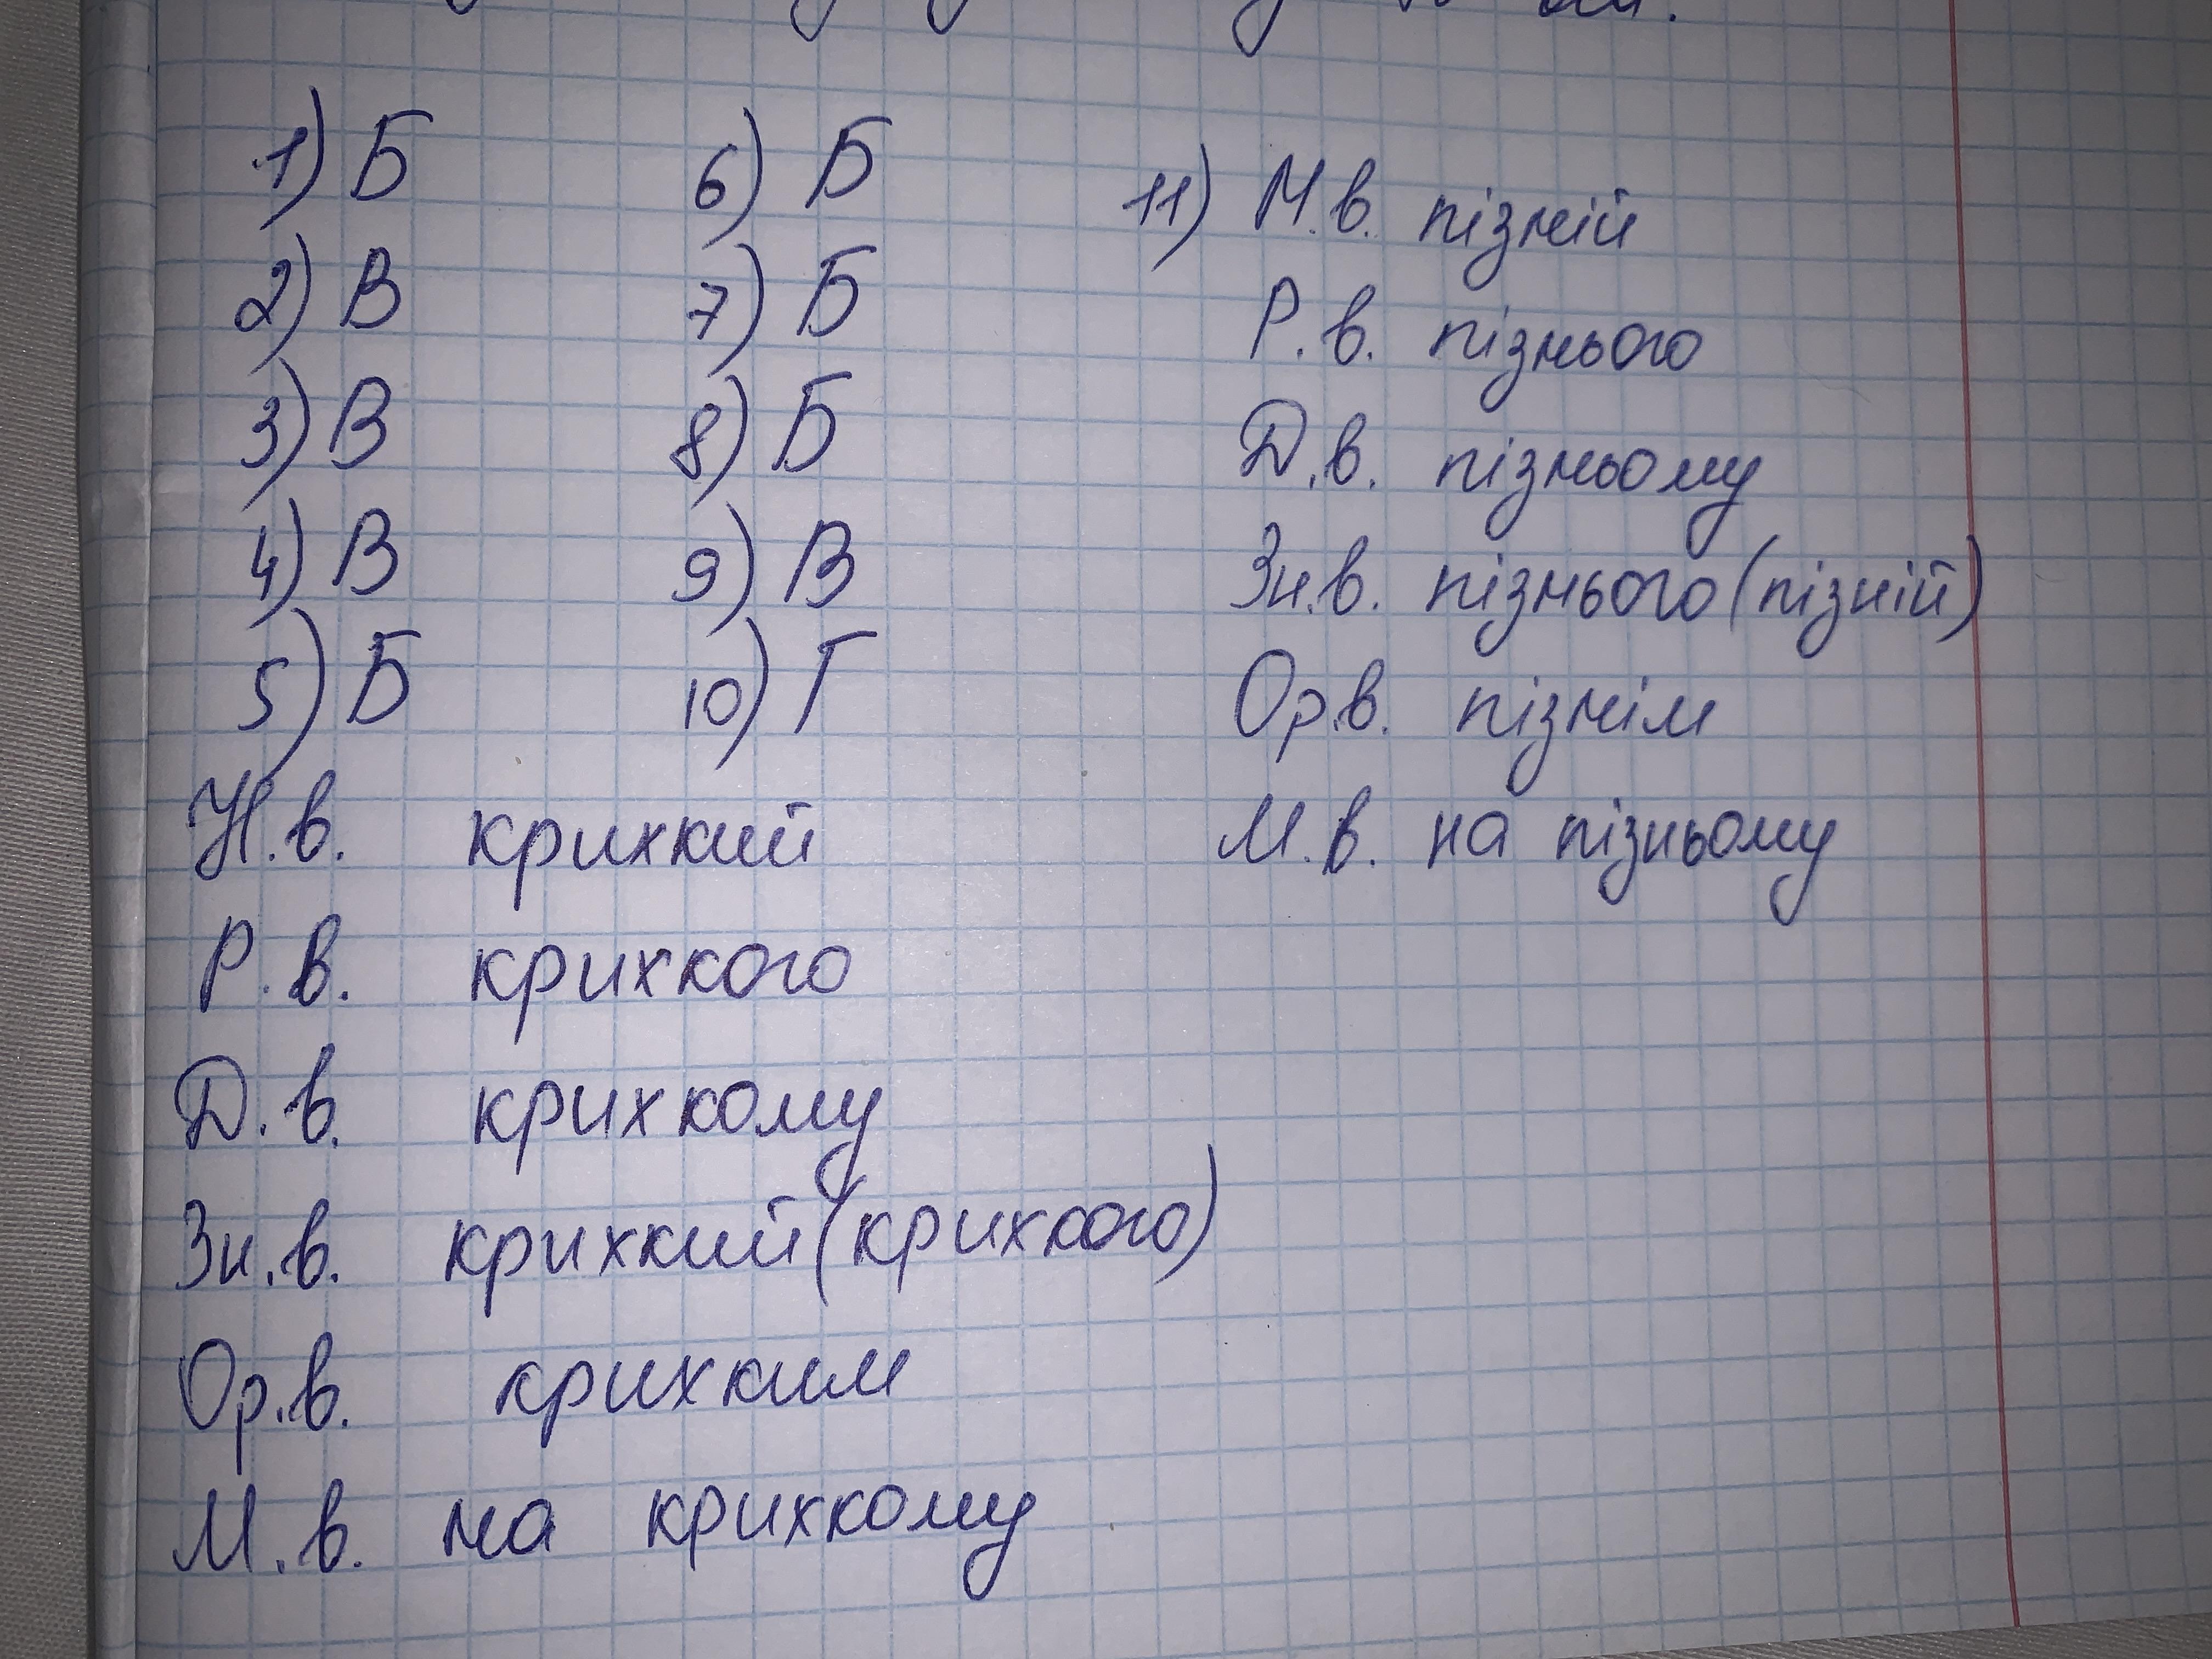 1) Б
2) В
3) В
4) В
5) Б
6) Б
7) Б
8) Б
9) В
10) Г
11) Н.в. пізній
Р.в. пізнього
Д.в. пізньому
Зн.в. пізнього (пізній)
Ор.в. пізнім
М.в. на пізньому
Н.в. крихкий
Р.в. крихкого
Д.в. крихкому
Зн.в. крихкий (крихкого)
Ор.в. крихким
М.в. на крихкому